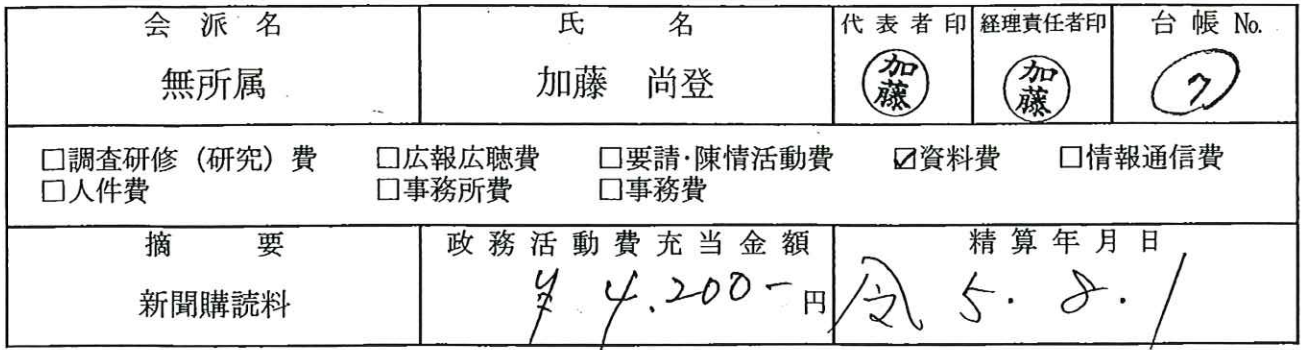 会派名 氏名 代表者印 経理責任者印 台帳No.
無所属 加藤 尚登 加藤 加藤 7
□調査研修(研究)費 □広報広聴費 □要請・陳情活動費 ☑資料費 □情報通信費
□人件費 □事務所費 □事務費
摘要 政務活動費充当金額 精算年月日
新聞購読料 ¥4.200-円 令5.8.1